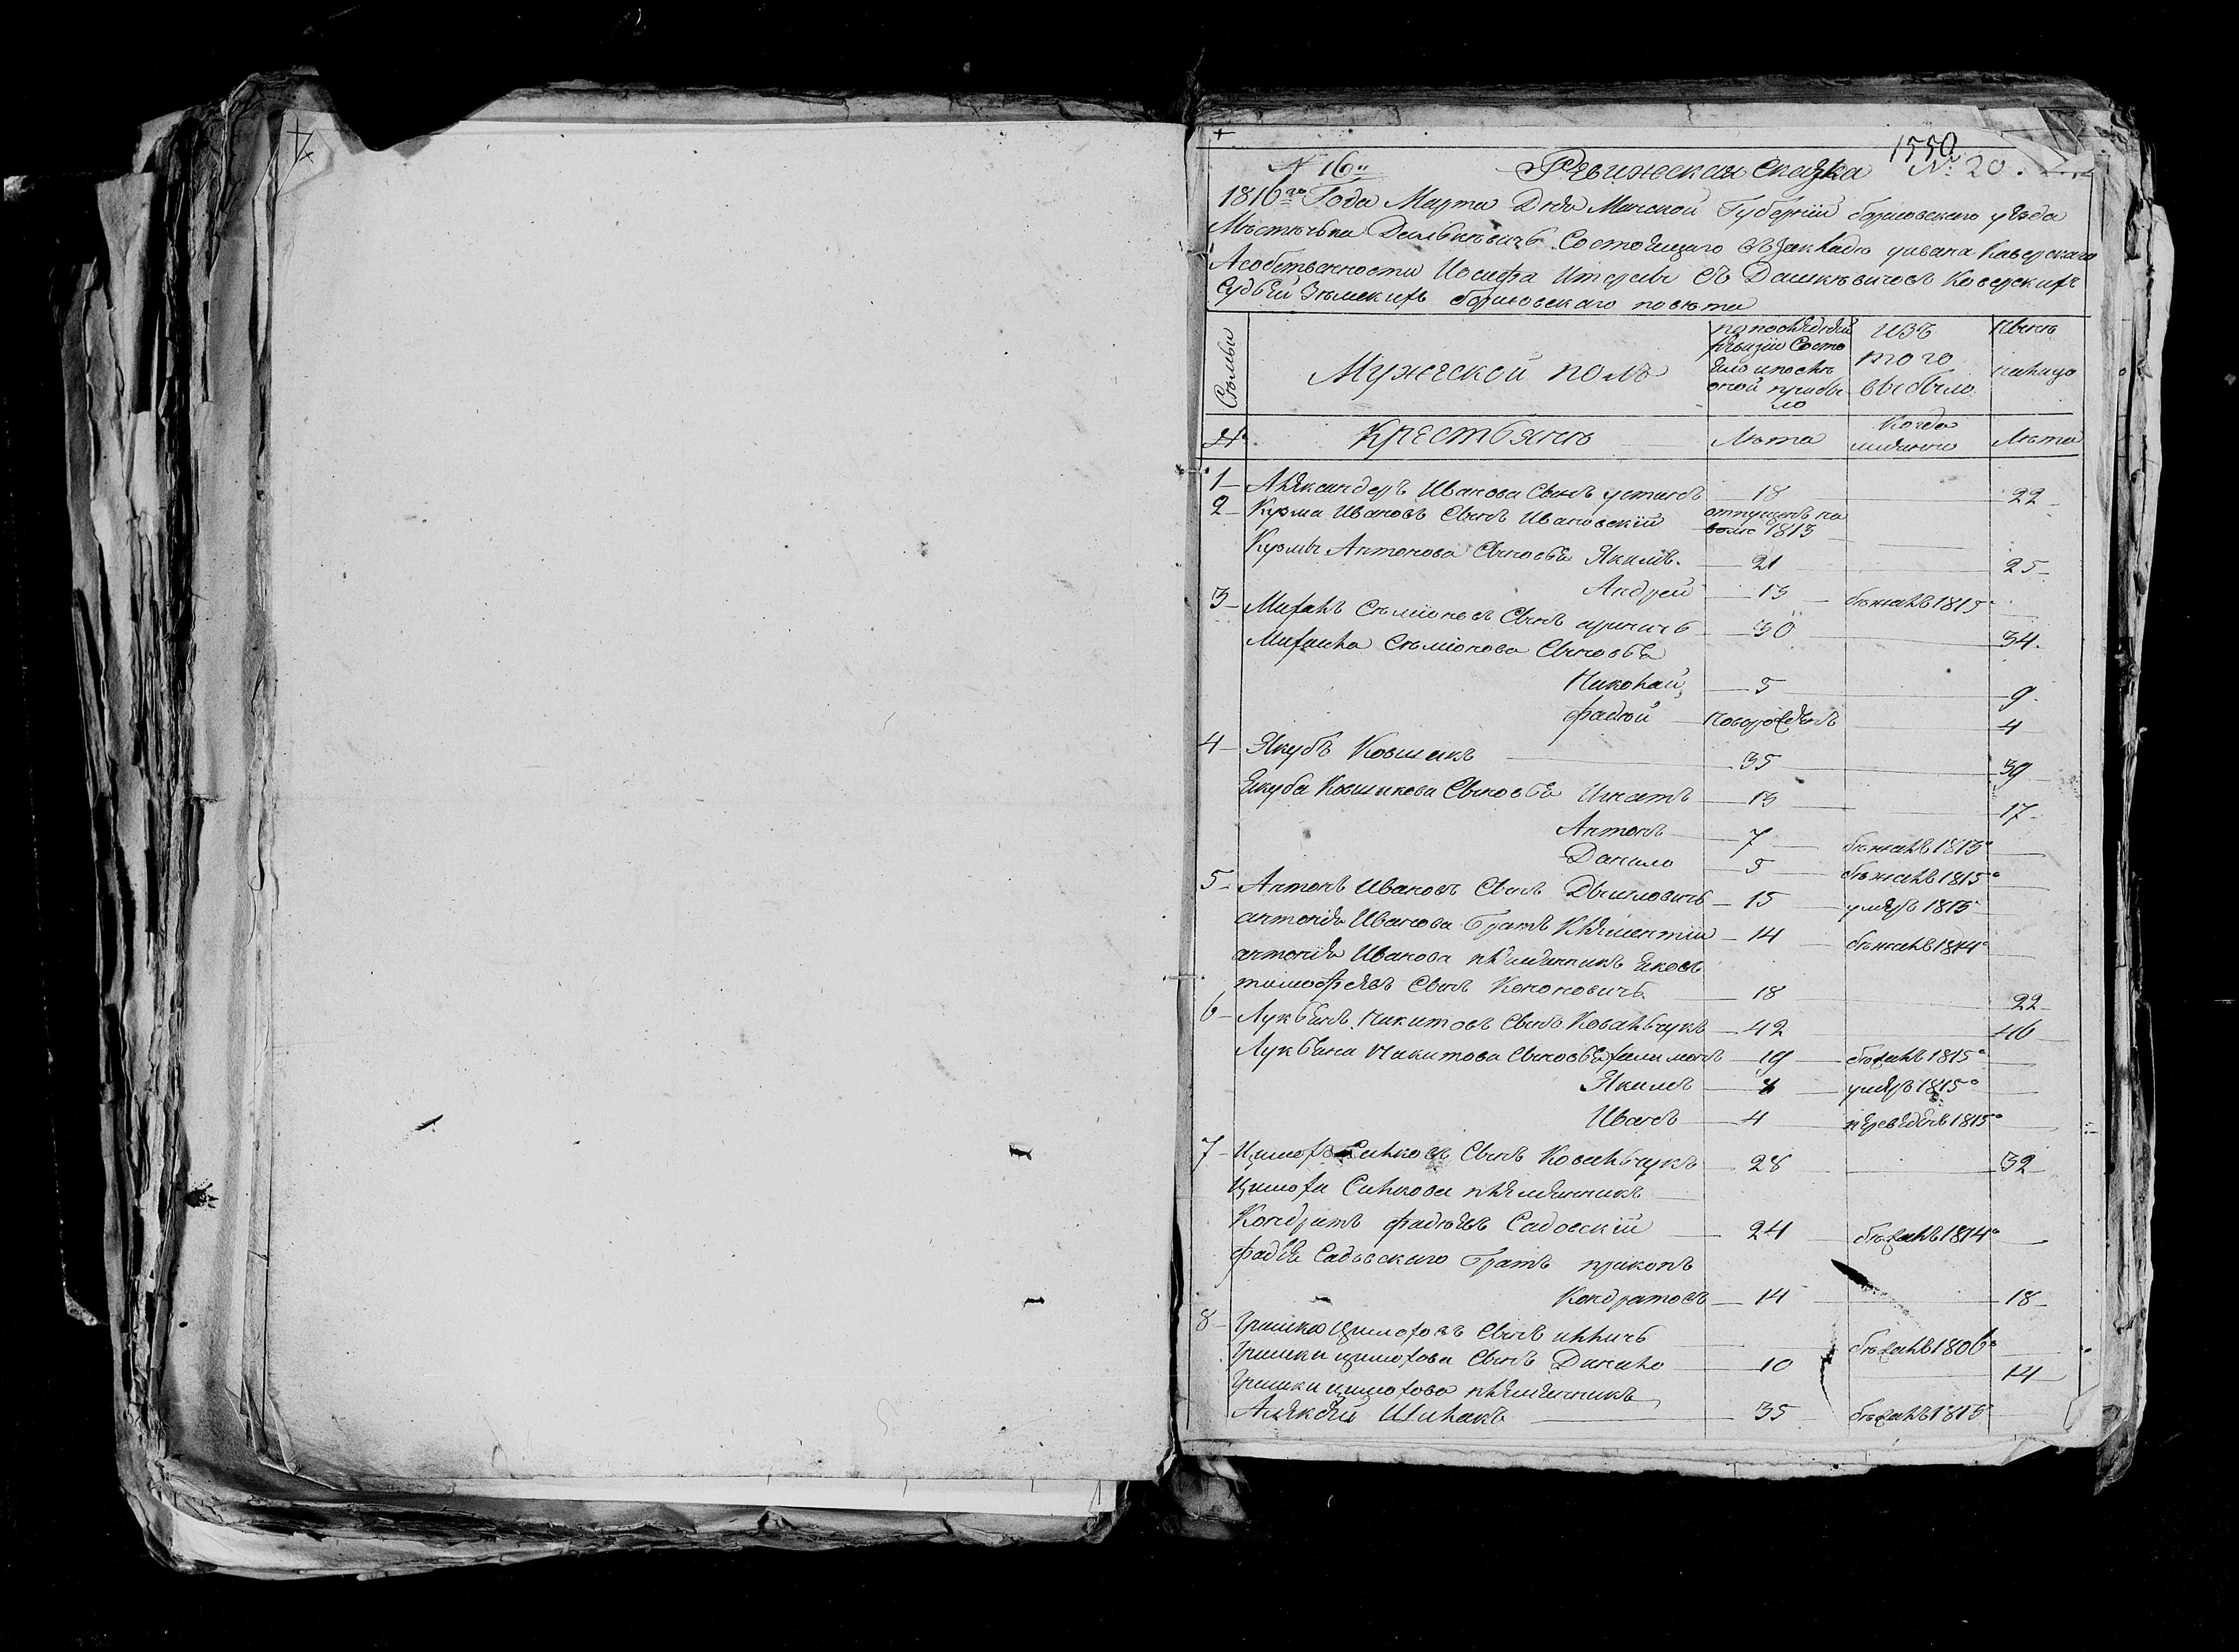 1550
N 16 Ревижская Сказка № 20.
1816го Года Марта Дня Минской Губернии борисовского уезда
Мѣстечька Состоящаго въ Закладе
Асобственности Иосифа съ
Судьей Земских борисовскаго повета
Мужеской полъ
по последней ревизии Состо
ило и после
оной прибы
ло
изъ
того
выбыло
ныне
налицо
Крестьяне
Лета
Когда
имянно
Лета
1 Александеръ Иванова Сынъ устинъ 18 22
2 Кузма Ивановъ Сынъ Ивановский отпущенъ на
волю 1813
Кузмы Антонова Сыновья Якимъ 21 25
Андрей 13 бежалъ 1815
3 Михалъ Семионовъ Сынъ 30 34
Михаила Семионова Сыновья
Николай 5 9
фадей новорожденъ 4
4 Якубъ Ковшикъ 35 39
Якуба Ковшикова Сыновья Игнатъ 13 17
Антонъ 7 бежалъ 1815
Данило 5 бежалъ 1815
5 Антонъ Ивановъ Сынъ 15 умеръ 1815
антония Иванова братъ Клементий 14 бежалъ 1814
антония Иванова племянникъ Яковъ
тимофеявъ Сынъ Кононовичь 18 22
6 Лукьянъ Никитовъ Сынъ Ковальчукъ 42 46
Лукьяна Никитова Сыновья филимонъ 19 бежалъ 1815
Якимъ умеръ 1815
Иванъ 4 переведенъ 1815
7 Цимохъ Силковъ Сынъ Ковальчукъ 28 32
Цимоха Силкова племянникъ
Кондратъ фадеявъ Садовский 24 бежалъ 1814
фадея Садовскаго братъ пракопъ
Кондратовъ 14 18
8 Гришко Цимоховъ Сынъ бежалъ 1806
Гришки цимохова Сынъ Данило 10 14
Гришки цимохова племянникъ
Алексей 35 бежалъ 1815